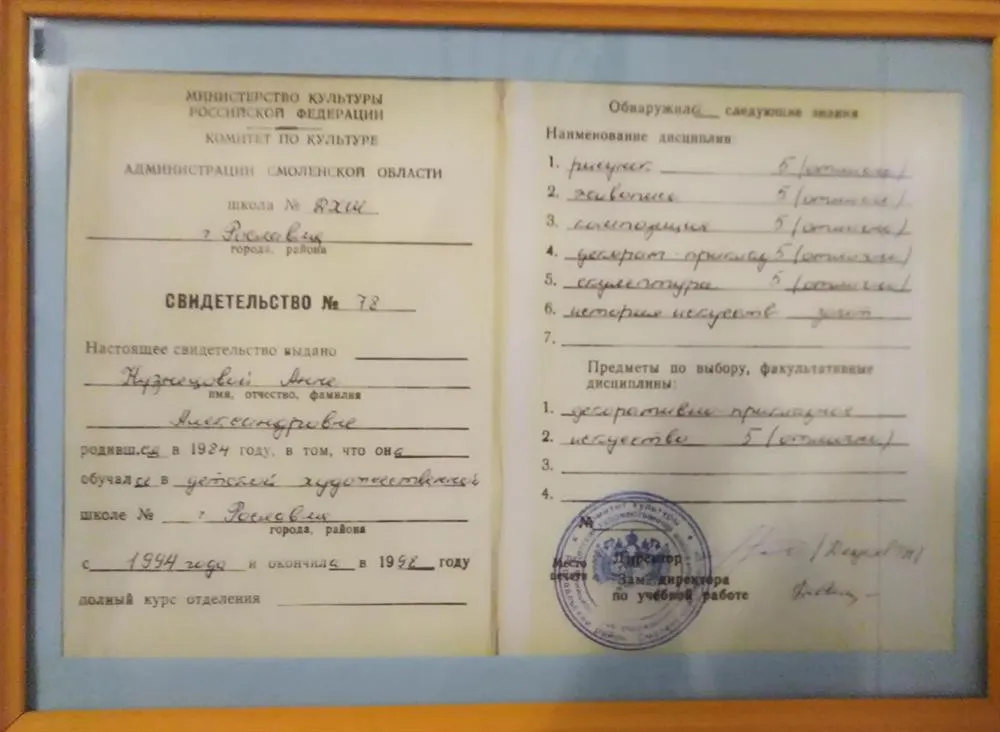 МИНИСТЕРСТВО КУЛЬТУРЫ
РОССИЙСКОЙ ФЕДЕРАЦИИ
КОМИТЕТ ПО КУЛЬТУРЕ
АДМИНИСТРАЦИИ СМОЛЕНСКОЙ ОБЛАСТИ
школа № ДХШ
г Рославль
города, района
СВИДЕТЕЛЬСТВО № 78
Настоящее свидетельство выдано
Кузнецовой Анне
имя, отчество, фамилия
Александровне
родивш.ся в 1984 году, в том, что она
обучалсь в детской художественной
школе № г Рославль
города, района
с 1994 года и окончила в 1998 году
полный курс отделения
Обнаружила следующие знания
Наименование дисциплин
1. рисунок 5 (отлично)
2. живопись 5 (отлично)
3. композиция 5 (отлично)
4. декорат-приклад 5 (отлично)
5. скульптура 5 (отлично)
6. история искусств зачет
7.
Предметы по выбору, факультативные
дисциплины:
1. декоративно прикладное
2. искусство 5 (отлично)
3.
4.
№
Место
печати
Директор
Зам. директора
по учебной работе